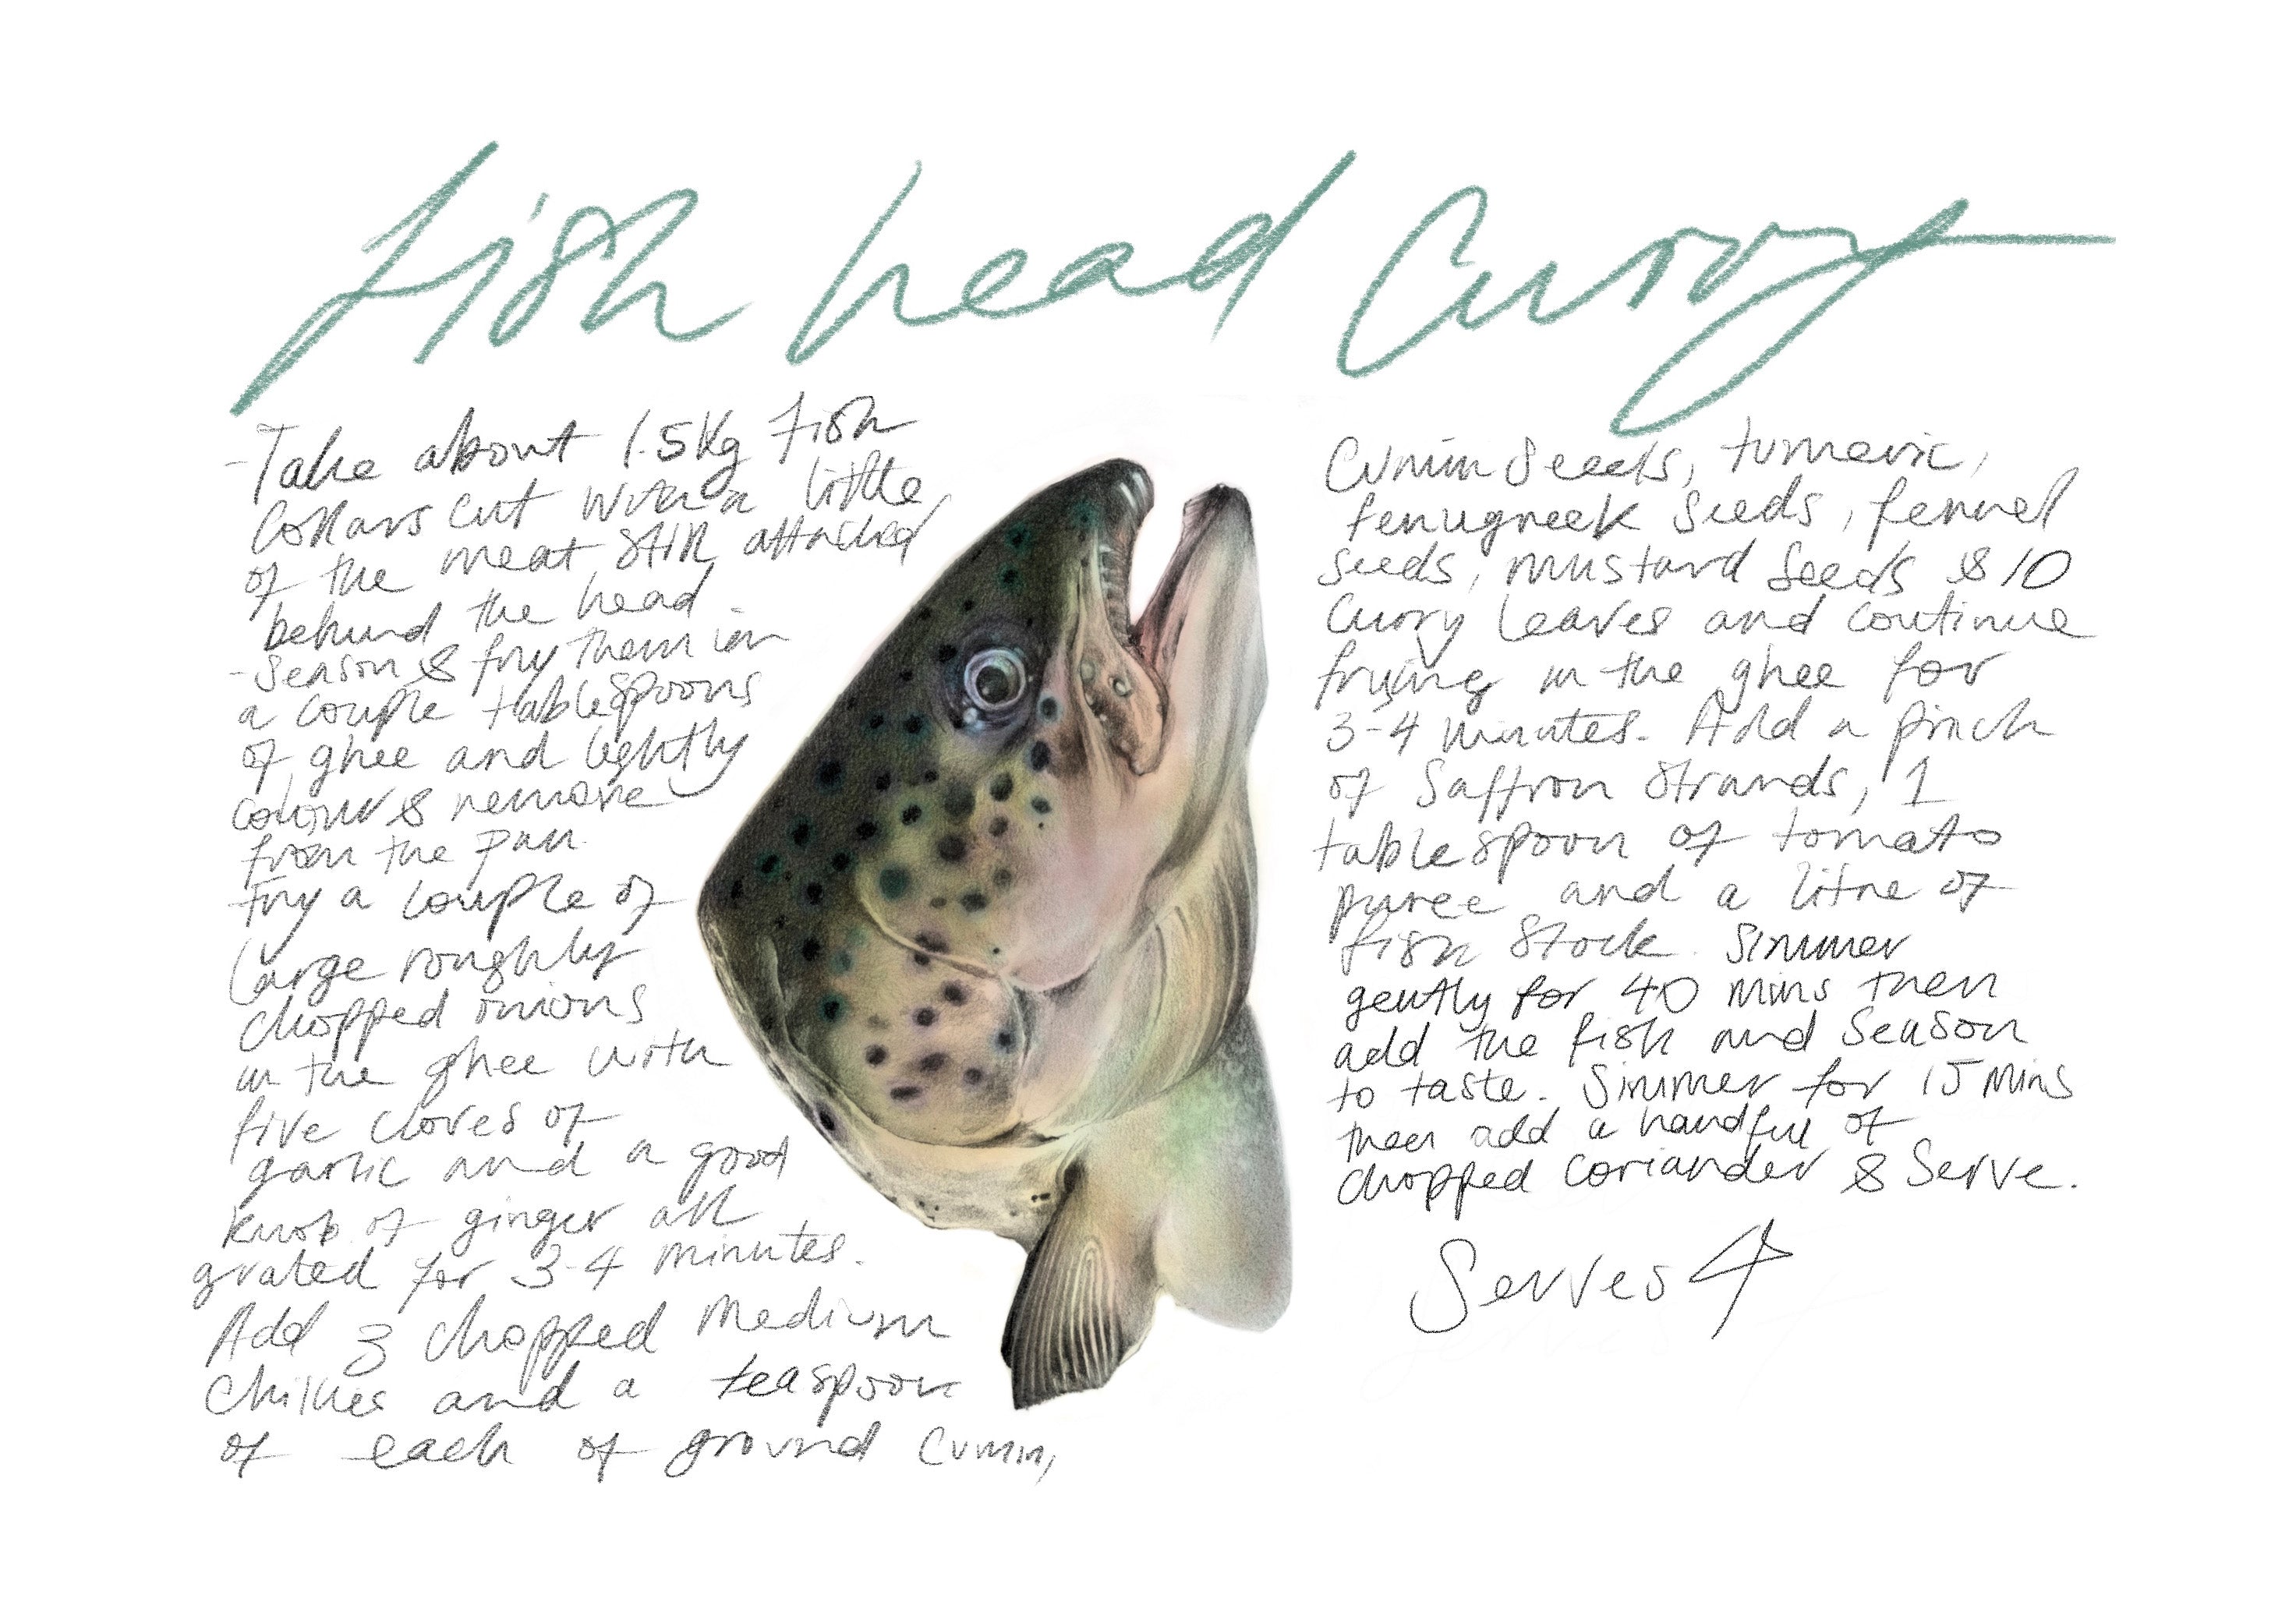 fish head Curry
-Take about 1.5Kg fish
Collars cut with a little
of the meat still attached
behind the head.
-Season & fry them in
a couple tablespoons
of ghee and lightly
colour & remove
from the pan.
Fry a couple of
large roughly
chopped onions
in the ghee with
five cloves of
garlic and a good
knob of ginger all
grated for 3-4 minutes.
Add 3 chopped medium
Chillies and a teaspoon
of each of ground Cumin,
Cumin Seeds, tumeric,
fenugreek Seeds, fennel
seeds, mustard Seeds & 10
Curry leaves and continue
frying in the ghee for
3-4 minutes. Add a pinch
of Saffron Strands, 1
tablespoon of tomato
puree and a litre of
fish Stock. Simmer
gently for 40 mins then
add the fish and Season
to taste. Simmer for 15 mins
then add a handful of
chopped coriander & Serve.
Serves 4